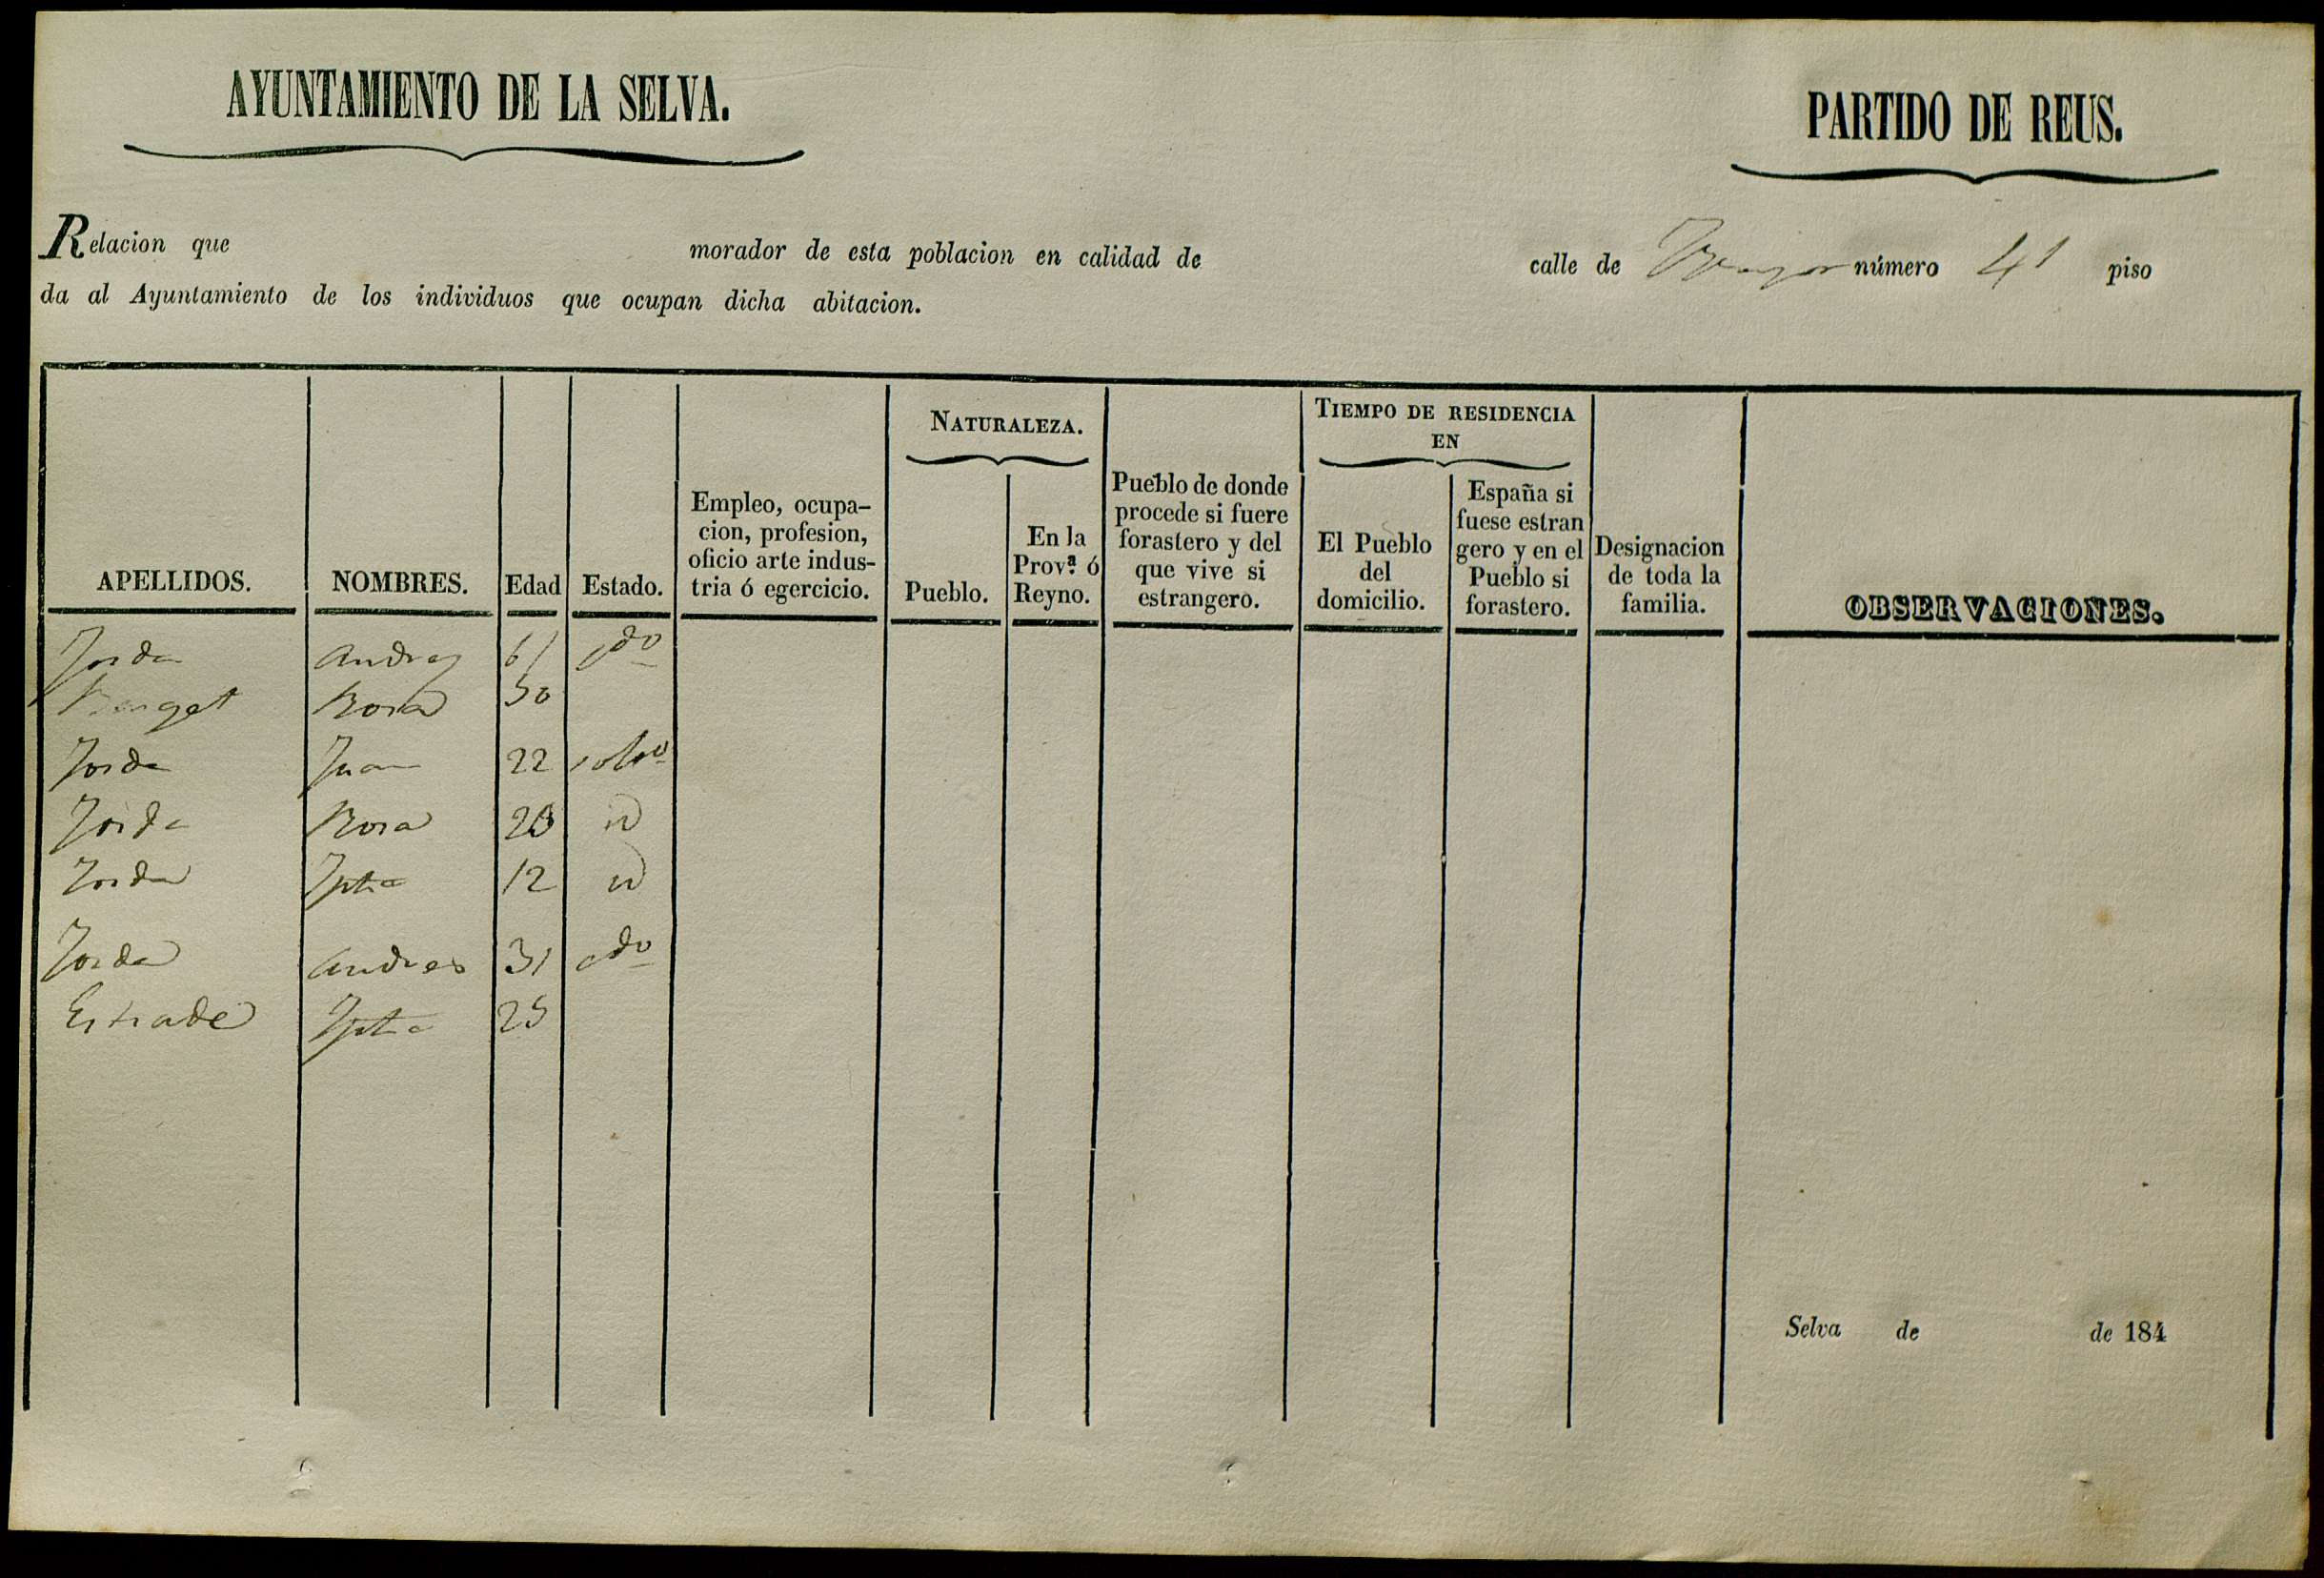 AYUNTAMIENTO DE LA SELVA.
PARTIDO DE REUS.
Relacion que morador de esta poblacion en calidad de calle de Mayor número 41 piso
da al Ayuntamiento de los individuos que ocupan dicha abitacion.
APELLIDOS.
NOMBRES.
Edad
Estado.
Empleo, ocupa-
cion, profesion,
oficio arte indus-
tria ó egercicio.
NATURALEZA.
Pueblo.
En la
Provª. ó
Reyno.
Pueblo de donde
procede si fuere
forastero y del
que vive si
estrangero.
TIEMPO DE RESIDENCIA
EN
El Pueblo
del
domicilio.
España si
fuese estran
gero y en el
Pueblo si
forastero.
Designacion
de toda la
familia.
OBSERVACIONES.
Jorda Andres 61 cdo
Rosa 50
Jorda Juan 22 soltro
Jorda Rosa 20 id
Jorda Jpha 12 id
Jorda Andres 31 cdo
Estrade Jpha 25
Selva de de 184